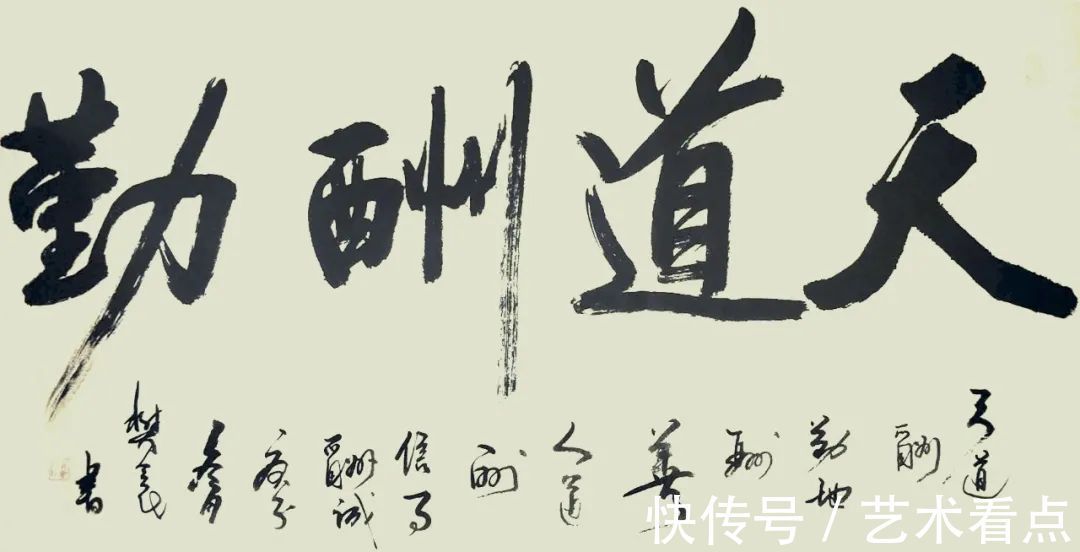 天道酬勤
天道
酬
勤地
酬
善
人道
酬
信
酬诚
樊
书
快传号 / 艺术看点